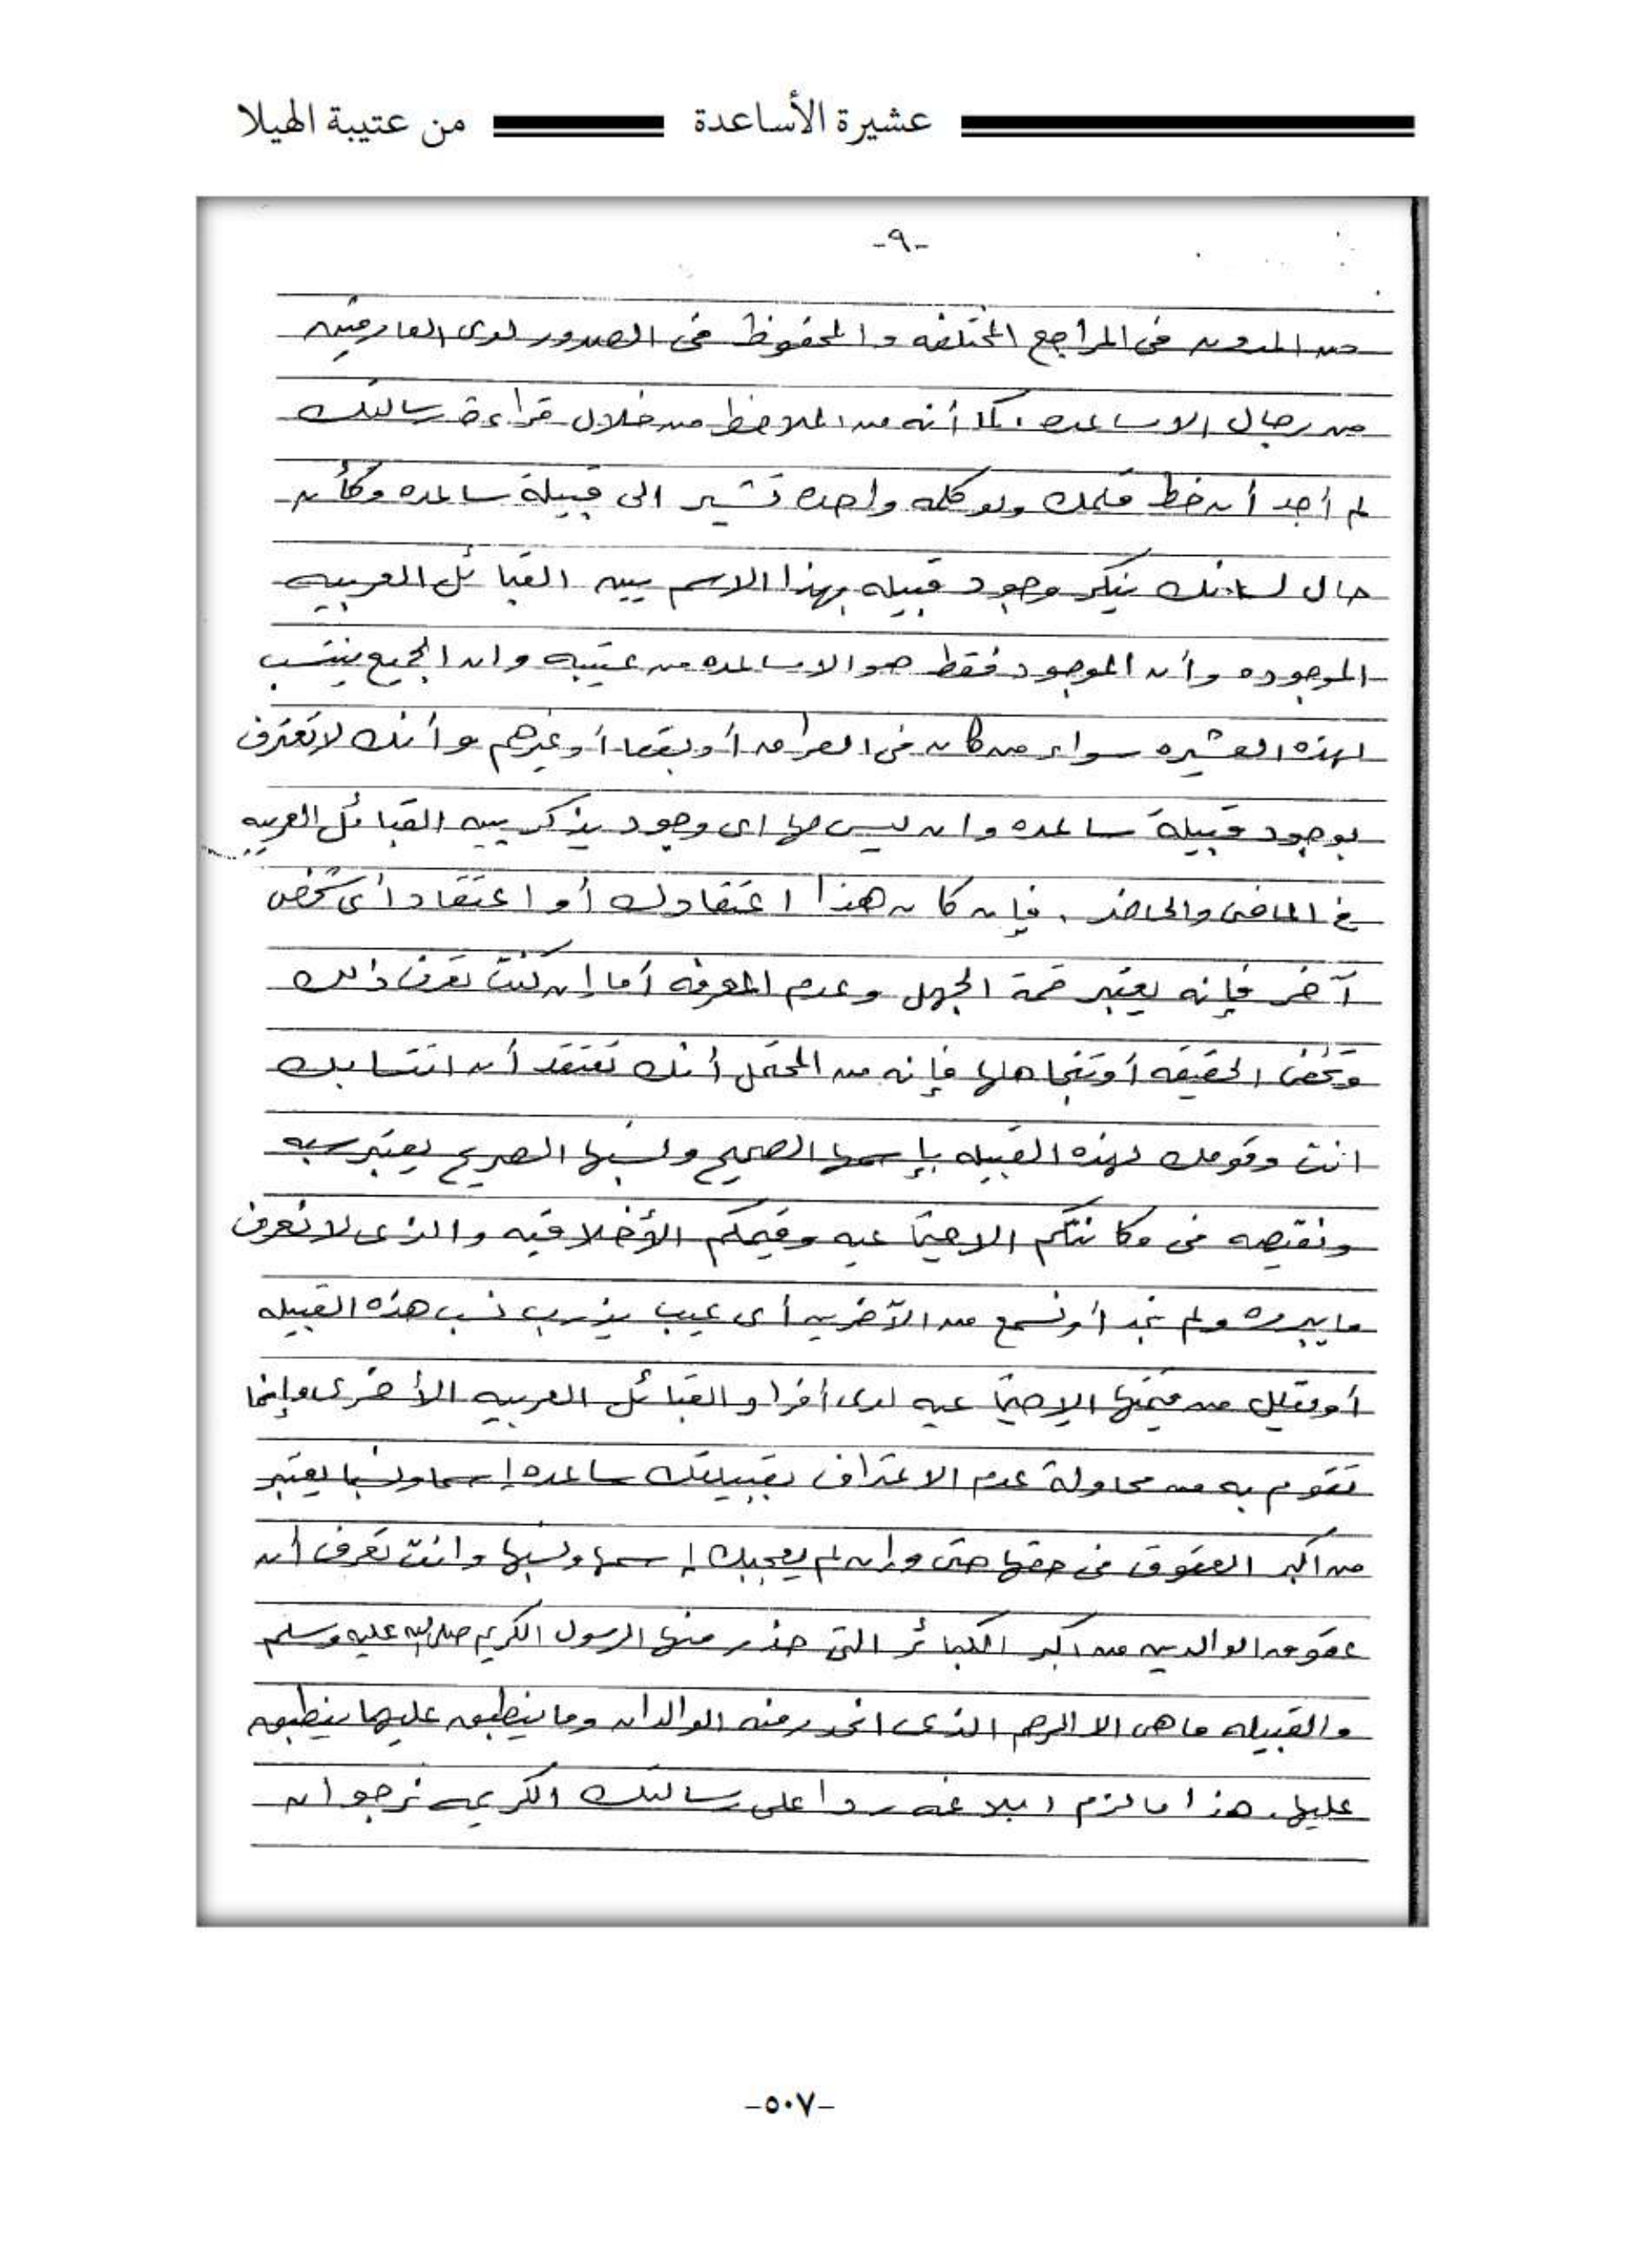 عشيرة الأساعدة من عتيبة الهيلا
-٩-
من المدون فى المراجع المختلفه والمحفوظ فى الصدور لدى العارفين
من رجال الاساعده . كما أنه من الملاحظ من خلال قراءة رسالتك
لم أجد أن خط قلمك ولو كلمه واحده تشير الى قبيلة ساعده وكأن
حال لسانك ينكر وجود قبيله بهذا الاسم بين القبائل العربيه
الموجوده وأن الموجود فقط هو الاساعده من عتيبه وان الجميع ينتسب
لهذه العشيره سواء من كان فى العراق أو بقعا أو غيرهم وأنك لاتعترف
بوجود قبيلة ساعده وان ليس لها اى وجود يذكر بين القبائل العربيه
في الماضى والحاضر . فإن كان هذا اعتقادك أو اعتقاد أى شخص
آخر فإنه يعتبر قمة الجهل وعدم المعرفه أما إن كنت تعرف ذلك
وتخفى الحقيقه أو تتجاهلها فإنه من المحتمل أنك تعتقد أن انتسابك
انت وقومك لهذه القبيله بإسمها الصحيح ونسبها الصريح يعتبر سبه
ونقيصه فى مكانتكم الاجتماعيه وقيمكم الأخلاقيه والذى لا نعرف
مايبرره ولم نجد أو نسمع من الآخرين أى عيب يذرب نسب هذه القبيله
أو يقلل من قيمتها الإجتماعيه لدى أفراد القبائل العربيه الأخرى وإنما
تقوم به من محاولة عدم الاعتراف بقبيلتك ساعده إسما ونسبا يعتبر
من اكبر العقوق فى حقها حتى وان لم يعجبك إسمها ونسبها وانت تعرف أن
عقوق الوالدين من اكبر الكبائر التى حذر منها الرسول الكريم صلى الله عليه وسلم
والقبيله ماهى الا الرحم الذى انحدر منه الوالدان وما ينطبق عليهما ينطبق
عليها. هذا مالزم ابلاغه ردا على رسالتك الكريمه نرجو ان
-٥٠٧-